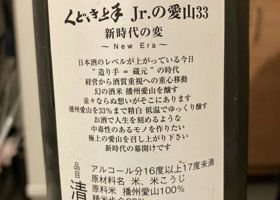 くどき上手 Jr.の愛山33
新時代の変
～ New Era ～
日本酒のレベルが上がっている今日
"造り手 = 蔵元"の時代
経営から酒質重視への重心移動
幻の酒米 播州愛山を醸す
並々ならぬ想いがそこにあります
播州愛山を33%まで精白 低温でゆっくり醸す
お酒で人生を刻めるような
中毒性のあるモノを作りたい
極上の愛山を召し上がり下さい
新時代の幕開けです
品目
清
アルコール分16度以上17度未満
原材料名 米、米こうじ
原料米 播州愛山100%